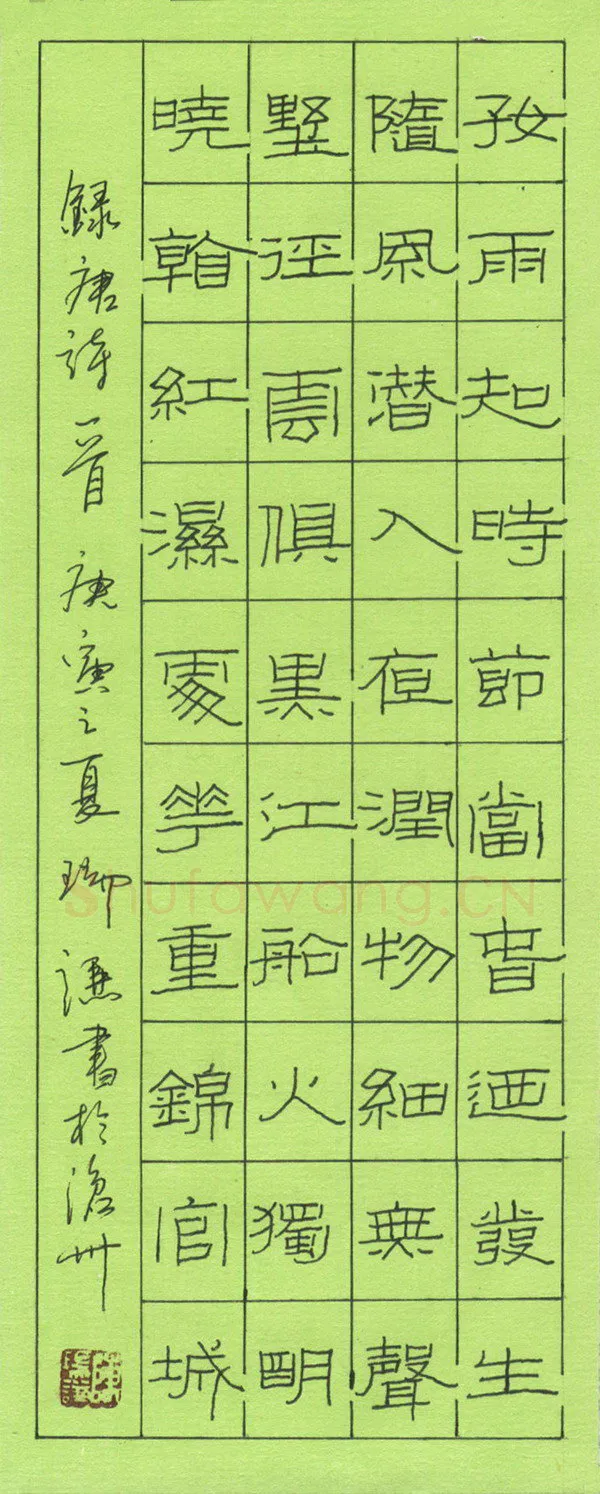 好雨知時節當春迺發生
隨風潜入夜潤物細無聲
墅徑雲俱黑江船火獨明
曉看紅濕處花重錦官城
録唐詩一首 庚寅之夏 謙書於滄州
shufawang.CN